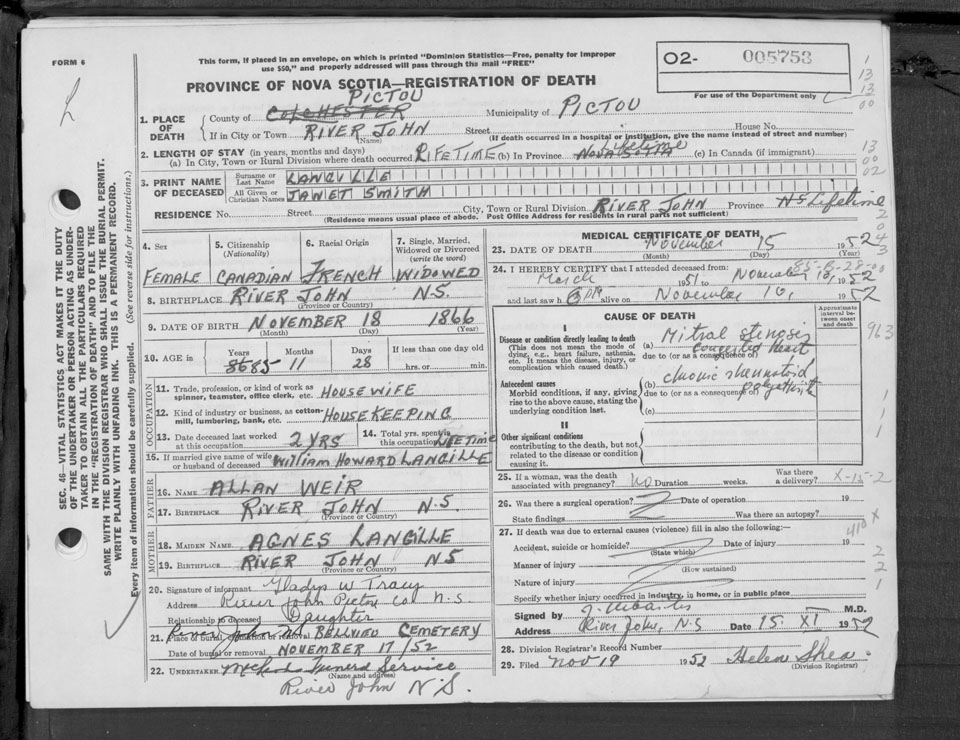 FORM 6
This form, if placed in an envelope, on which is printed "Dominion Statistics—Free, penalty for improper
use $50," and properly addressed will pass through the mail "FREE"
O2- 005753
For use of the Department only
PROVINCE OF NOVA SCOTIA—REGISTRATION OF DEATH
PICTOU
1. PLACE OF DEATH { County of COLCHESTER Municipality of PICTOU
If in City or Town RIVER JOHN Street House No.
(Name) (If death occurred in a hospital or institution, give the name instead of street and number)
2. LENGTH OF STAY (in years, months and days) lifetime
(a) In City, Town or Rural Division where death occurred LIFETIME (b) In Province NOVA SCOTIA (c) In Canada (if immigrant)
3. PRINT NAME OF DECEASED { Surname or Last Name LANGILLE
All Given or Christian Names JANET SMITH
RESIDENCE No. Street City, Town or Rural Division RIVER JOHN Province NS Lifetime
(Residence means usual place of abode. Post Office Address for residents in rural parts not sufficient)
4. Sex
5. Citizenship
(Nationality)
6. Racial Origin
7. Single, Married,
Widowed or Divorced
(write the word)
FEMALE CANADIAN FRENCH WIDOWED
8. BIRTHPLACE RIVER JOHN N.S.
(Province or Country)
9. DATE OF BIRTH NOVEMBER 18 1866
(Month) (Day) (Year)
10. AGE in Years Months Days If less than one day old
86 85 11 28 hrs. or min.
OCCUPATION
11. Trade, profession, or kind of work as
spinner, teamster, office clerk, etc. HOUSEWIFE
12. Kind of industry or business, as cotton-
mill, lumbering, bank, etc. HOUSEKEEPING
13. Date deceased last worked
at this occupation 2 YRS
14. Total yrs. spent in
this occupation LIFETIME
15. If married give name of wife
or husband of deceased WILLIAM HOWARD LANGILLE
FATHER
16. NAME ALLAN WEIR
17. BIRTHPLACE RIVER JOHN N.S.
(Province or Country)
MOTHER
18. MAIDEN NAME AGNES LANGILLE
19. BIRTHPLACE RIVER JOHN NS
(Province or Country)
20. Signature of informant Gladys W Tracy
Address River John Pictou Co N.S.
Relationship to deceased Daughter
21. Place of burial, cremation or removal River John N.S. BELLVIEO CEMETERY
Date of burial or removal NOVEMBER 17/52
22. UNDERTAKER Funeral Service
(Name and address)
River John N.S.
MEDICAL CERTIFICATE OF DEATH
23. DATE OF DEATH November 15 1952
(Month) (Day) (Year)
24. I HEREBY CERTIFY that I attended deceased from:
March 1951 to November 10, 1952
and last saw h alive on November 10, 1952
CAUSE OF DEATH
Approximate interval between onset and death
I
Disease or condition directly leading to death
(This does not mean the mode of
dying, e.g., heart failure, asthenia,
etc. It means the disease, injury, or
complication which caused death.)
(a) Mitral stenosis
congested heart
due to (or as a consequence of)
Antecedent causes
Morbid conditions, if any, giving
rise to the above cause, stating the
underlying condition last.
(b) chronic rheumatoid
polyarthritis
due to (or as a consequence of)
(c)
II
Other significant conditions
contributing to the death, but not
related to the disease or condition
causing it.
25. If a woman, was the death
associated with pregnancy? no Duration weeks. Was there
a delivery? X-15-2
26. Was there a surgical operation? Date of operation 19
State findings Was there an autopsy?
27. If death was due to external causes (violence) fill in also the following:—
Accident, suicide or homicide? Date of injury 19
(State which)
Manner of injury
(How sustained)
Nature of injury
Specify whether injury occurred in industry, in home, or in public place
Signed by M.D.
Address River John, N.S Date 15. XI 1952
28. Division Registrar's Record Number
29. Filed Nov 19 1952 Helen Shea
(Division Registrar)
SEC. 46—VITAL STATISTICS ACT MAKES IT THE DUTY
OF THE UNDERTAKER OR PERSON ACTING AS UNDER-
TAKER TO OBTAIN ALL THE PARTICULARS REQUIRED
IN THE "REGISTRATION OF DEATH" AND TO FILE THE
SAME WITH THE DIVISION REGISTRAR WHO SHALL ISSUE THE BURIAL PERMIT.
WRITE PLAINLY WITH UNFADING INK. THIS IS A PERMANENT RECORD.
Every item of information should be carefully supplied. (See reverse side for instructions.)
1
13
13
00
13
00
02
2
0
4
3
963
1
1
410
X
2
2
1